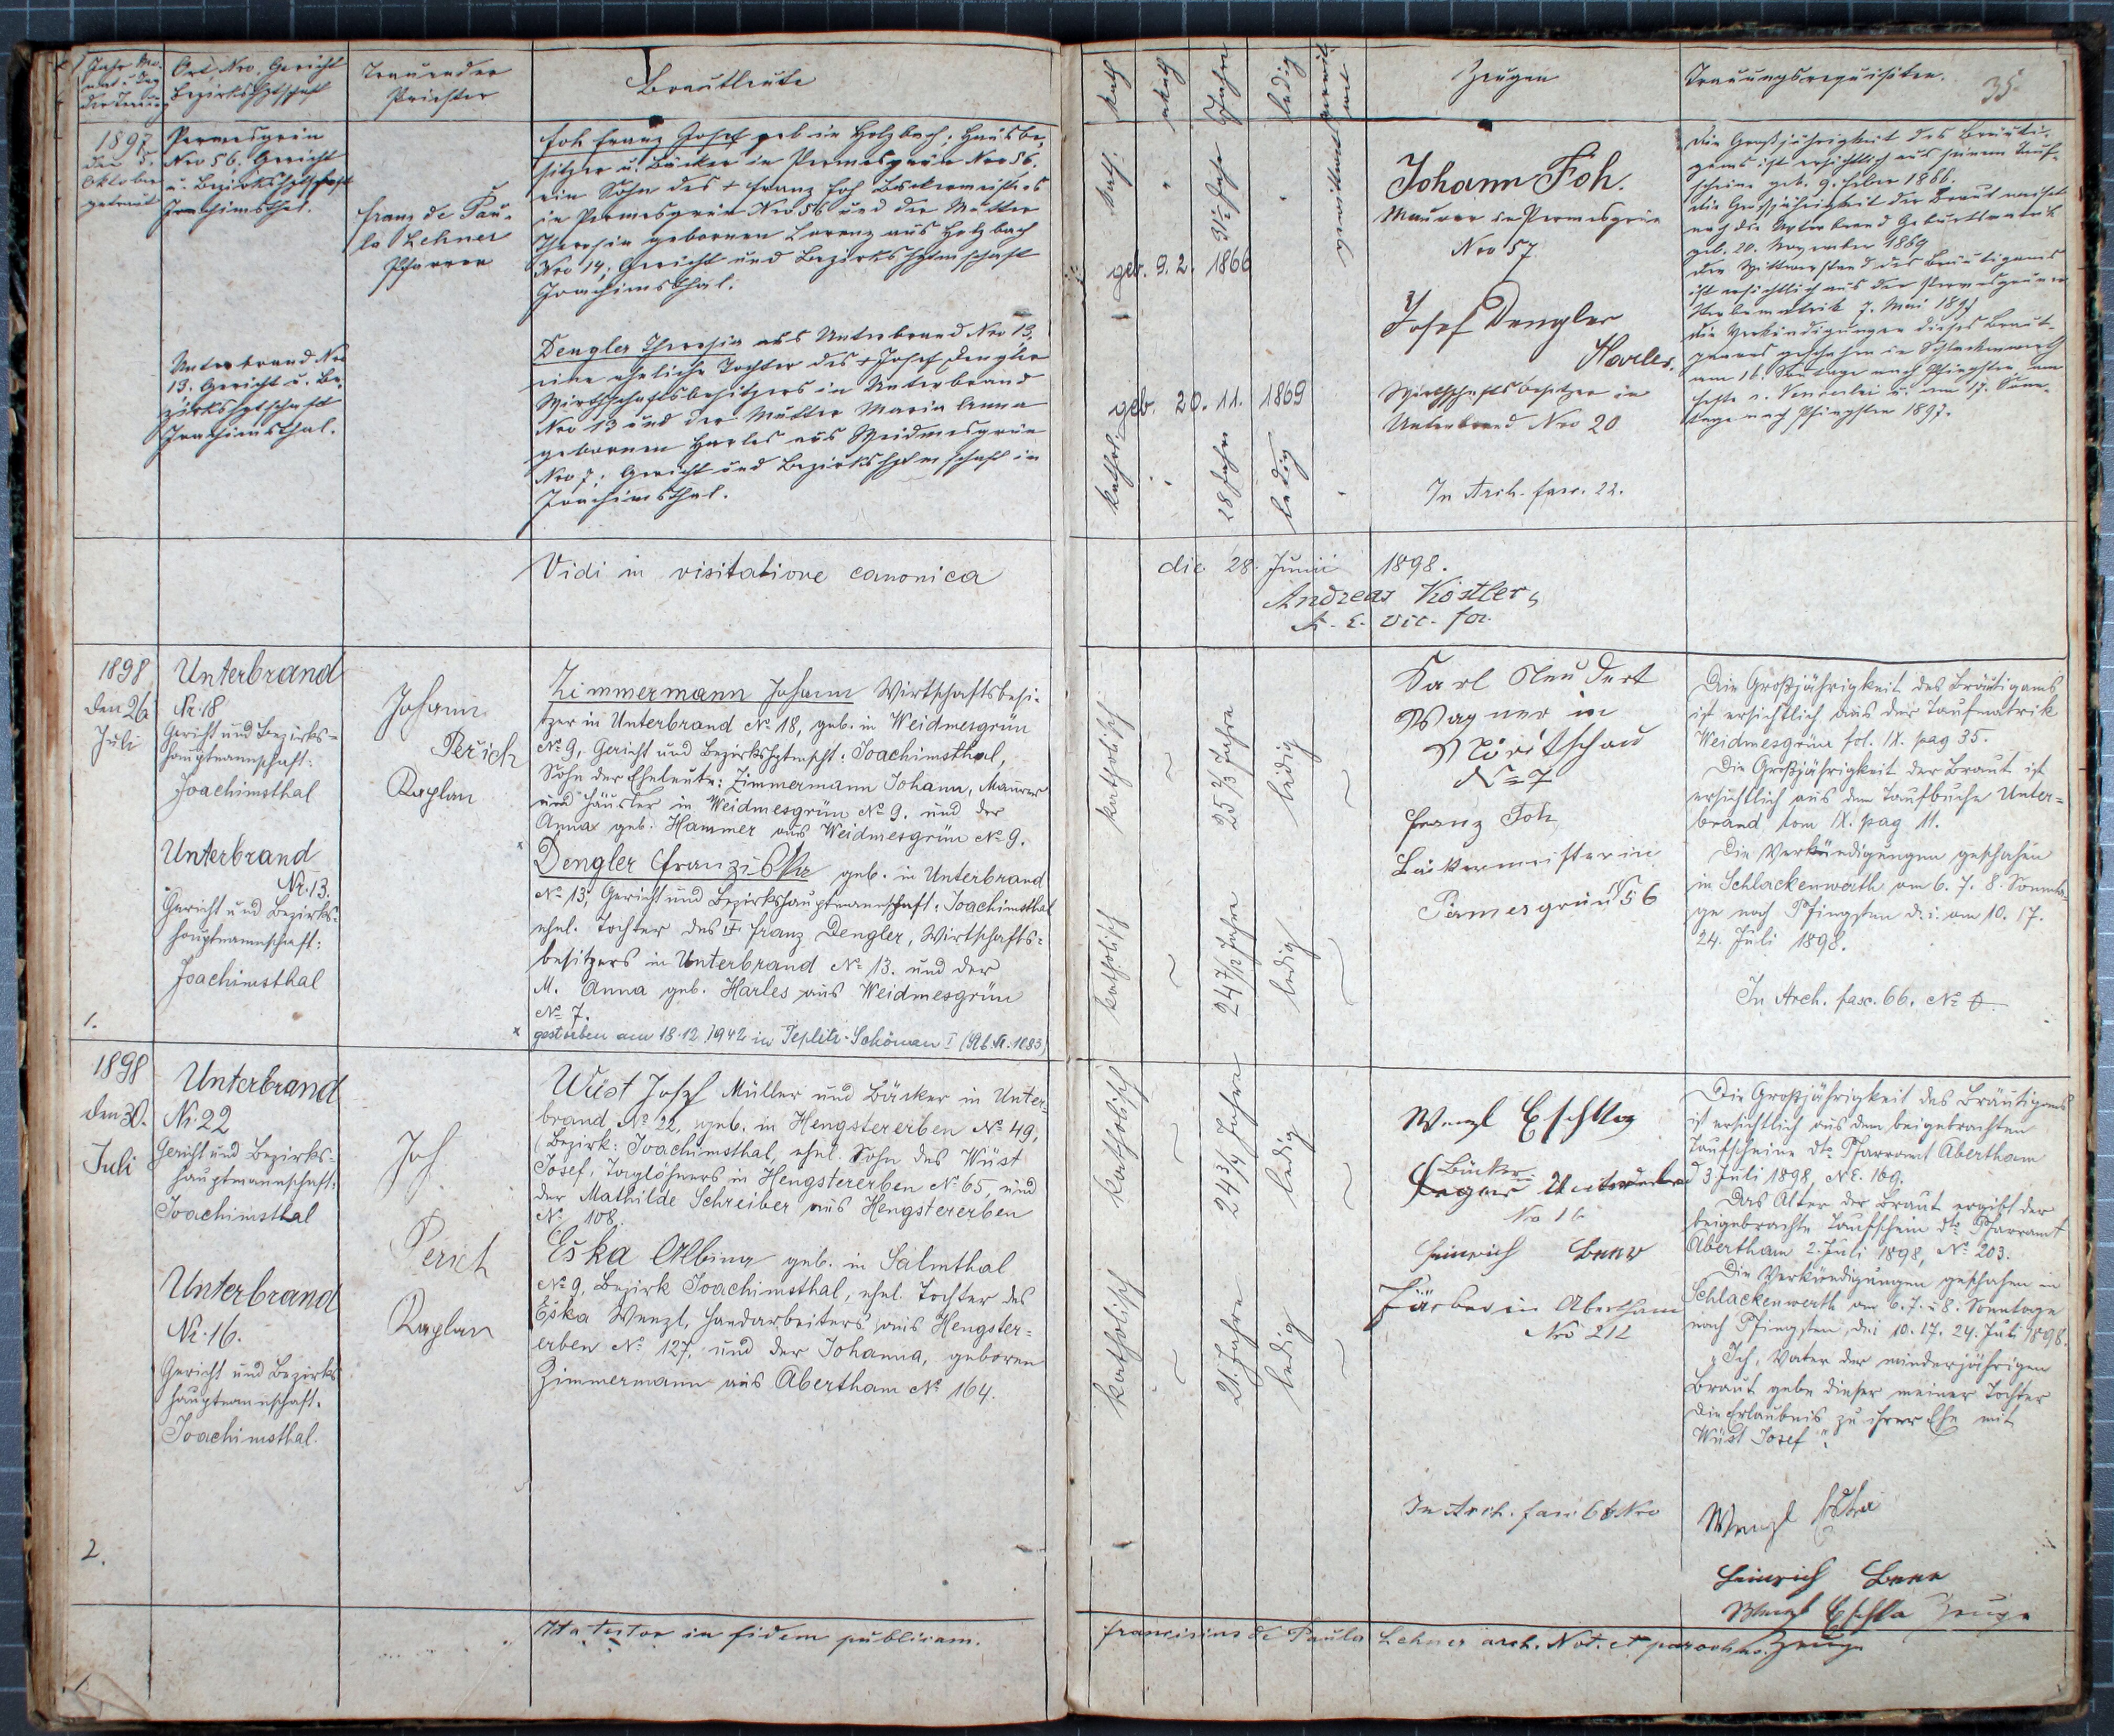 Jahr Mo-
nat u. Tag
der Trauung
Ort, Nro, Gericht
Bezirkshptschaft
Trauender
Priester
Brautleute
kath
akath
Jahre
ledig
verwit-
wet
Zeugen
Trauungsrequisiten.
35
1897
den 5.
Oktober
getraut
Permesgrün
Nro 56. Gericht
u. Bezirkshptschaft
Joachimsthal.
Franz de Pau-
la Lehner
Pfarrer
Foh Franz Josef geb in Holzbach; Hausbe-
sitzer u. Bäcker in Permesgrün Nro 56,
ein Sohn des + Franz Foh Bäckermeisters
in Permesgrün Nro 56 und der Mutter
Theresia gebornen Lorenz aus Holzbach
Nro 14; Gericht und Bezirkshptmschaft
Joachimsthal.
kath.
31½ Jahr
verwittwet
geb. 9. 2. 1866
Johann Foh.
Maurer in Permesgrün
Nro 57.
Josef Dengler
Harles.
Wirthschaftsbesitzer in
Unterbrand Nro 20
In Arch. fasc. 22.
Die Großjährigkeit des Bräuti-
gams ist ersichtlich aus seinem Tauf-
scheine geb. 9. Feber 1866.
Die Großjährigkeit der Braut weiset
nach die Unterbrand Geburtsmatrik
geb. 20. November 1869
Der Wittwerstand des Bräutigams
ist ersichtlich aus der Permesgrüner
Sterbematrik 7. Mai 1897
Die Verkündigungen dieses Braut-
paares geschahen in Schlackenwerth
am 16. Sonntage nach Pfingsten, am
Feste s. Wenceslai u. am 17. Sonn-
tage nach Pfingsten 1897.
Unterbrand Nro
13. Gericht u. Be-
zirkshptschaft
Joachimsthal.
Dengler Theresia aus Unterbrand Nro 13,
eine eheliche Tochter des + Josef Dengler
Wirthschaftsbesitzers in Unterbrand
Nro 13 und der Mutter Maria Anna
gebornen Harles aus Weidmesgrün
Nro 7; Gericht und Bezirkshptmschaft in
Joachimsthal.
geb. 20. 11. 1869
kathol.
28 Jahre
ledig
Vidi in visitatione canonica die 28. Junii 1898.
Andreas Köstler,
A. E. vic. for.
1898
den 26
Juli
Unterbrand
Nr. 18
Gericht und Bezirks-
hauptmannschaft:
Joachimsthal
Johann
Perich
Kaplan
Zimmermann Johann Wirtschaftsbesi-
tzer in Unterbrand No 18, geb. in Weidmesgrün
No 9, Gericht und Bezirkshptmscht: Joachimsthal,
Sohn der Eheleute: Zimmermann Johann, Maurer
und Häusler in Weidmesgrün No 9. und der
Anna geb. Hammer aus Weidmesgrün No 9.
katholisch
25 2/3 Jahre
ledig
Karl Neudert
Wagner in
Möritschau
No 7
Franz Foh
Bäckermeister in
Permesgrün No 56
Die Großjährigkeit des Bräutigams
ist ersichtlich aus der Taufmatrik
Weidmesgrün fol. IX. pag 35.
Die Großjährigkeit der Braut ist
ersichtlich aus dem Taufbuche Unter-
brand tom IX. pag 11.
Die Verkündigungen geschahen
in Schlackenwerth am 6. 7. 8. Sonnta-
ge nach Pfingsten d. i. am 10. 17.
24. Juli 1898.
In Arch. fasc. 66. No
Unterbrand
Nr. 13.
Gericht und Bezirks-
hauptmannschaft:
Joachimsthal
1.
x Dengler Franziska geb. in Unterbrand
No 13; Gericht und Bezirkshauptmannschaft: Joachimsthal
ehel. Tochter des + Franz Dengler, Wirtschafts-
besitzers in Unterbrand No 13. und der
M. Anna geb. Harles aus Weidmesgrün
No 7.
x gestorben am 18.12.1942 in Teplitz-Schönau I (Stb. Nr. 1083)
katholisch
24 7/12 Jahre
ledig
1898
den 30.
Juli
Unterbrand
Nr. 22
Gericht und Bezirks-
hauptmannschaft:
Joachimsthal
Joh.
Perich
Kaplan
Wüst Josef Müller und Bäcker in Unter-
brand No 22, geb. in Hengstererben No 49,
(Bezirk: Joachimsthal, ehel. Sohn des Wüst
Josef, Taglöhners in Hengstererben No 65, und
der Mathilde Schreiber aus Hengstererben
No 108.
katholisch
24 3/4 Jahre
ledig
Wenzl
Bäcker
Unterbrand
Nro 16
Heinrich
Färber in Abertham
Nro 212
Die Großjährigkeit des Bräutigams
ist ersichtlich aus dem beigebrachten
Taufscheine dto Pfarramt Abertham
3. Juli 1898, NE. 169.
Das Alter der Braut ergibt der
beigebrachte Taufschein dto Pfarramt
Abertham 2. Juli 1898, No 203.
Die Verkündigungen geschahen in
Schlackenwerth am 6. 7. u. 8. Sonntage
nach Pfingsten, d. i. 10. 17. 24. Juli 1898.
"Ich, Vater der minderjährigen
Braut gebe dieser meiner Tochter
die Erlaubnis zu ihrer Ehe mit
Wüst Josef".
Unterbrand
Nr. 16.
Gericht und Bezirks
hauptmannschaft.
Joachimsthal.
2.
Eška Albina geb. in Salmthal
No 9, Bezirk Joachimsthal, ehel. Tochter des
Eška Wenzl, Handarbeiters aus Hengster-
erben No 127, und der Johanna, geboren
Zimmermann aus Abertham No 164.
katholisch
21. Jahre
ledig
In Arch. fasc. 68 Nro
Wenzl Eška
Heinrich
Wenzl Zeuge
Zeuge
Ita testor in fidem publicam. Franciscus de Paula Lehner arch. Not. et parochus.